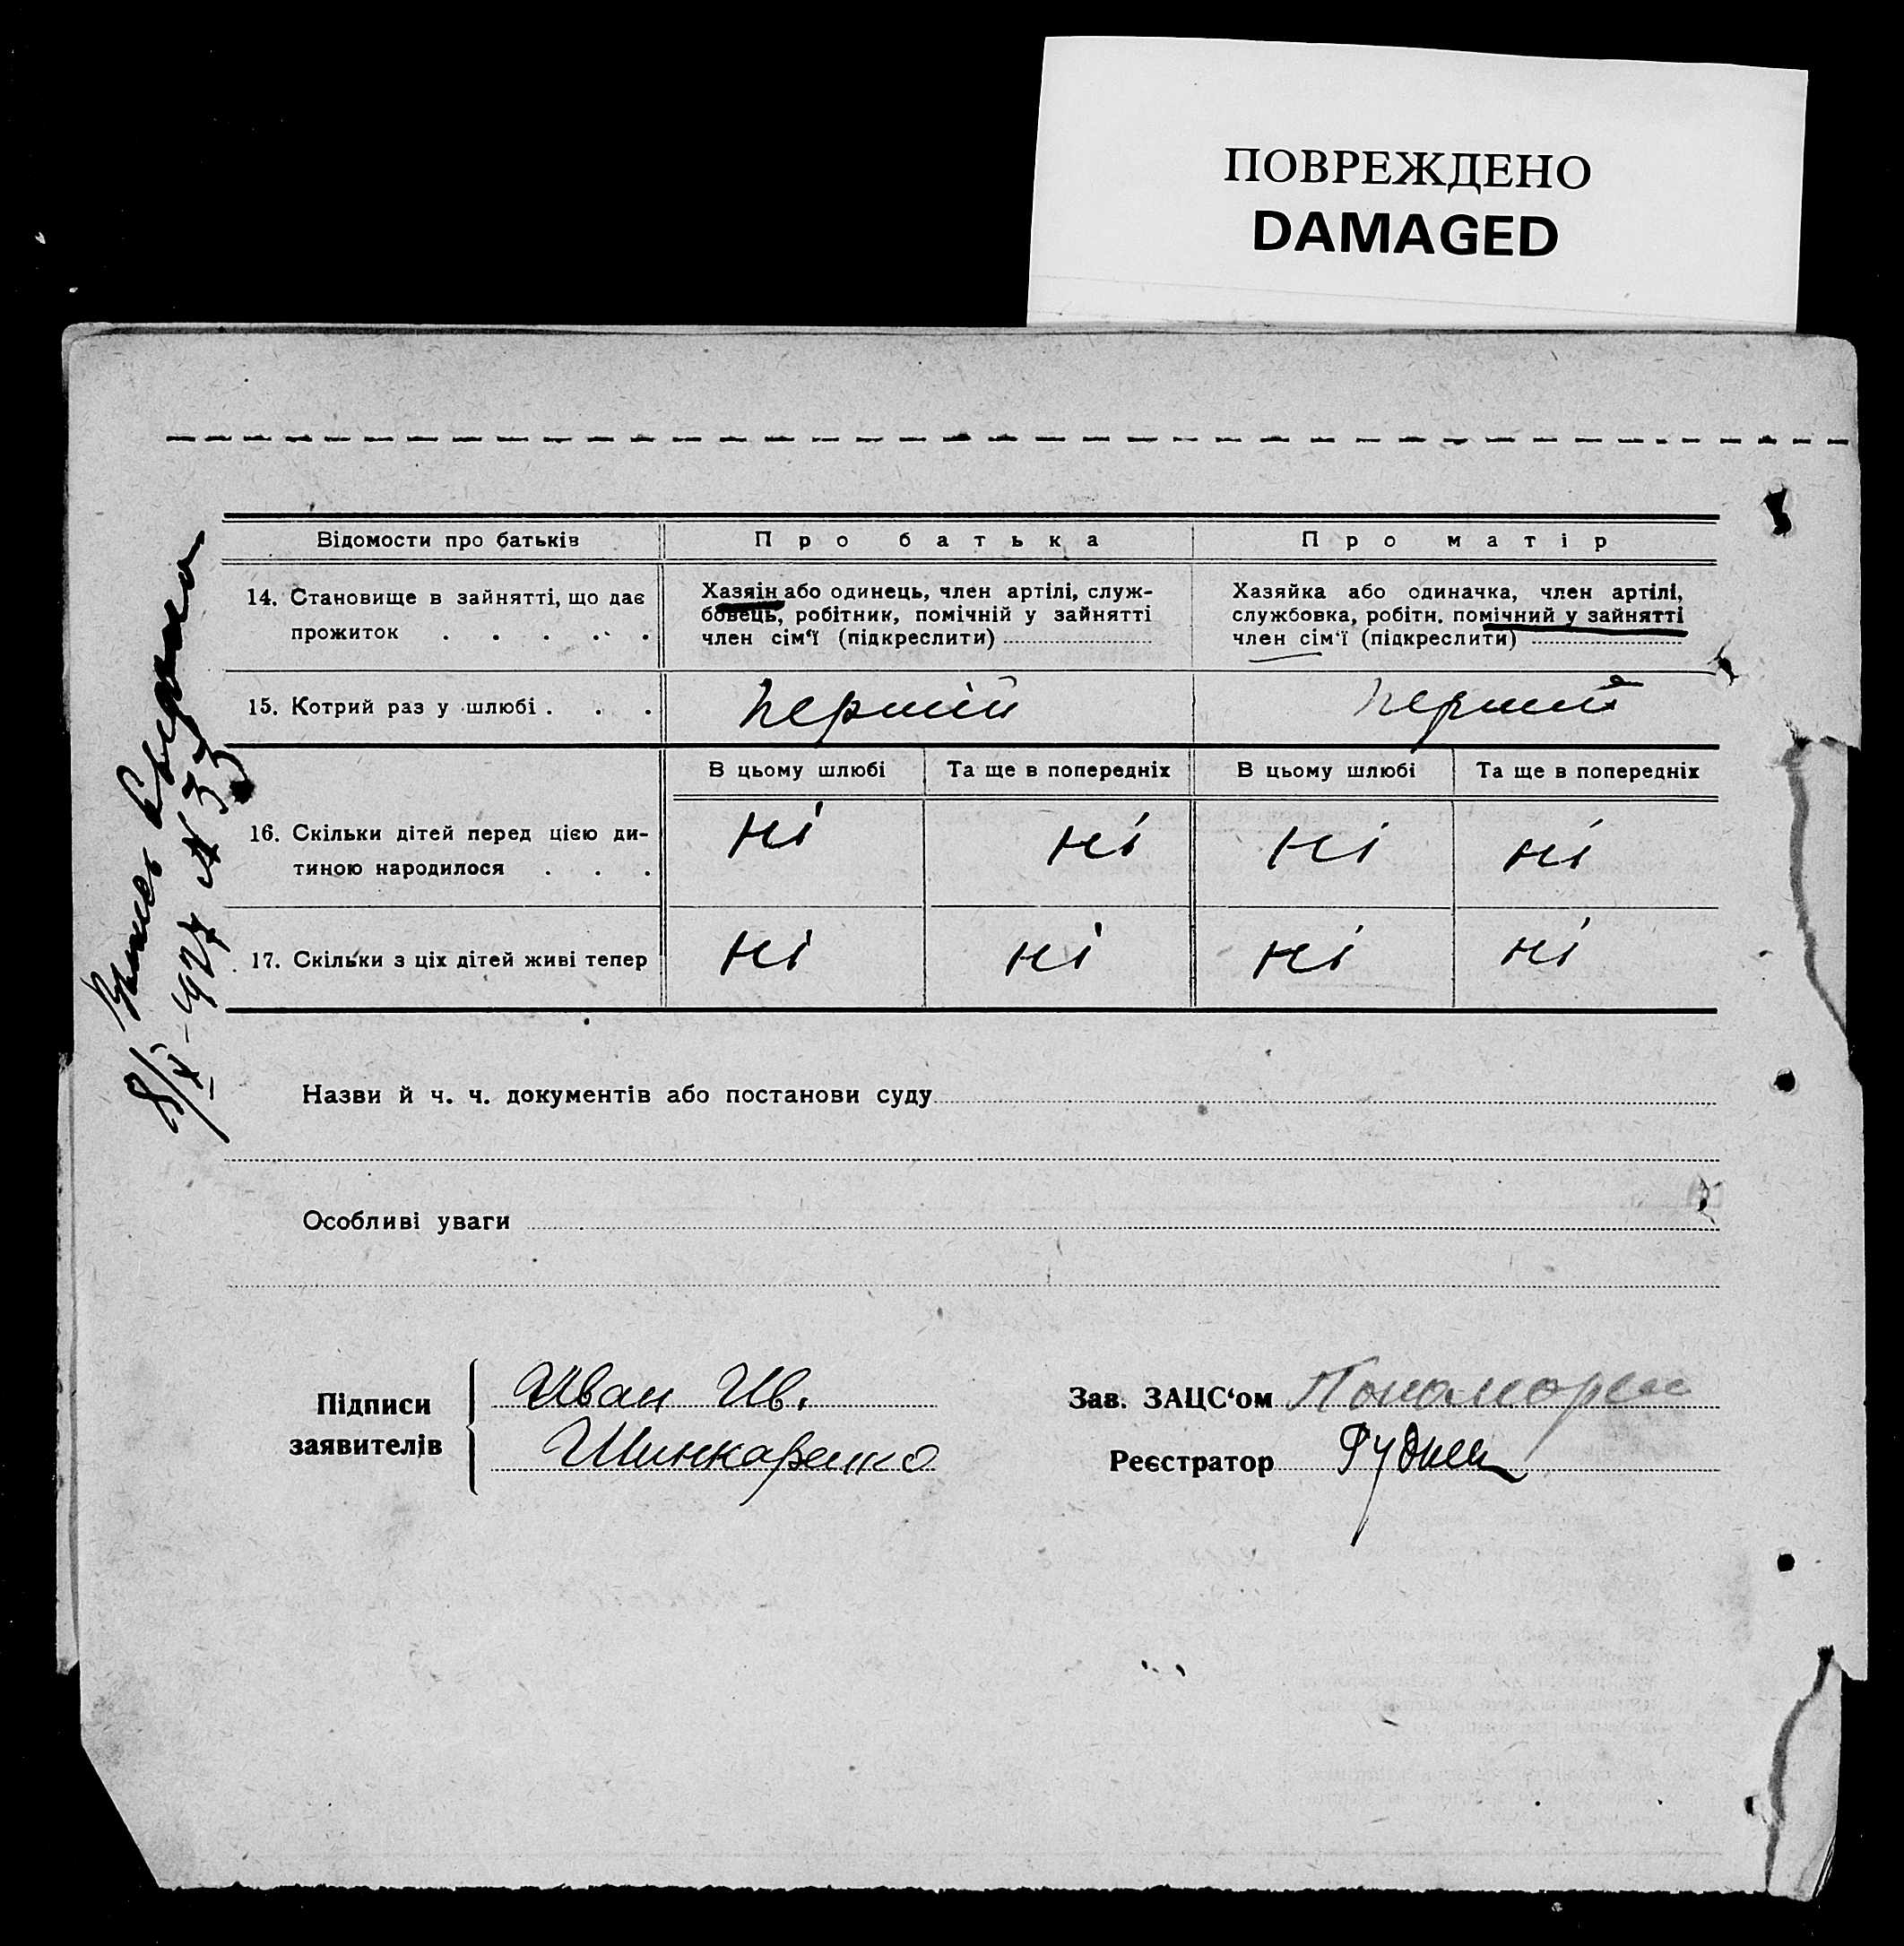 ПОВРЕЖДЕНО
DAMAGED
Відомости про батьків
Про батька
Про матір
14. Становище в зайнятті, що дає
прожиток . . . . .
Хазяін або одинець, член артілі, служ-
бовець, робітник, помічній у зайнятті
член сім'ї (підкреслити)
Хазяйка або одиначка, член артілі,
службовка, робітн. помічний у зайнятті
член сім'ї (підкреслити)
15. Котрий раз у шлюбі . . .
перший
перший
В цьому шлюбі
Та ще в попередніх
В цьому шлюбі
Та ще в попередніх
16. Скільки дітей перед цією ди-
тиною народилося . . .
ні
ні
ні
ні
17. Скільки з ціх дітей живі тепер
ні
ні
ні
ні
8/X-1927 N 33
Назви й ч. ч. документів або постанови суду
Особливі уваги
Підписи
заявителів
Иван Ив.
Шинкаренко
Зав. ЗАЦС'ом
Реєстратор